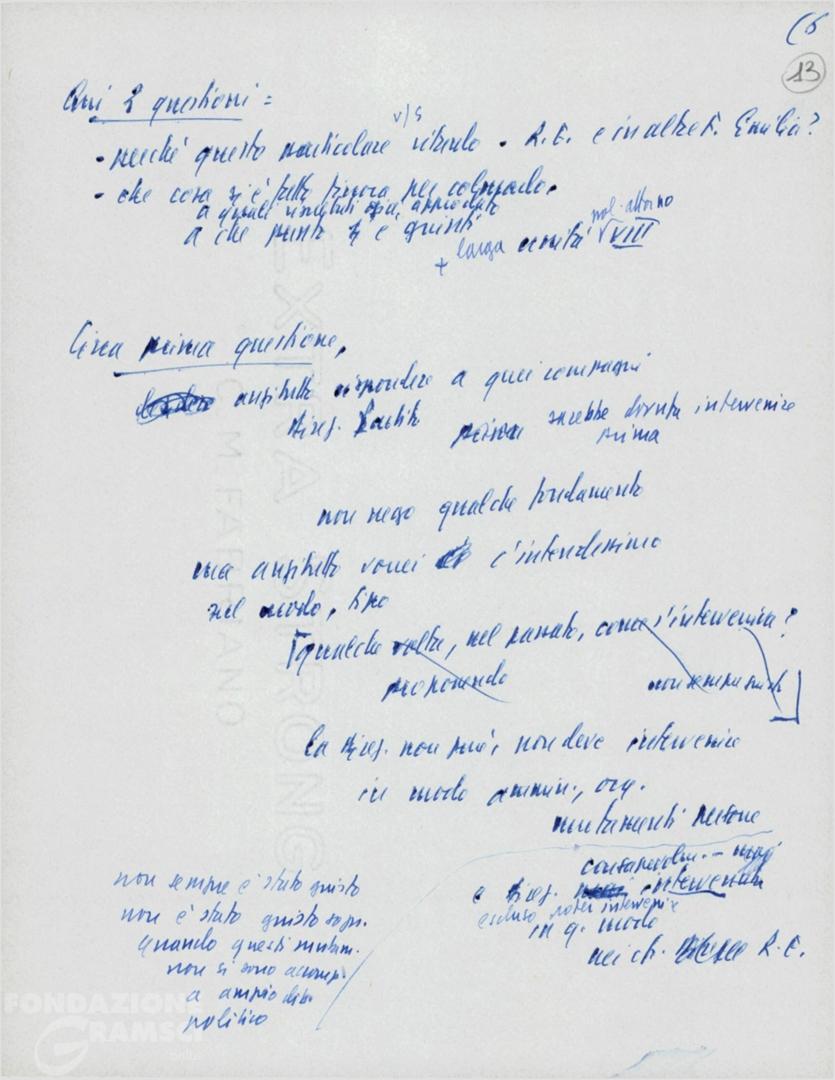 (6
13
Qui 2 questioni =
v/s
• perché questo particolare ritardo • R.E. e in altre F. Emilia?
• che cosa si è fatto finora per colmarlo.
a quali risultati si è approdato
a che punto si è giunti
pol. attorno
+ larga unità VIII
Circa prima questione,
anzitutto rispondere a quei compagni
Direz. Partito sarebbe dovuta intervenire
prima
non nego qualche fondamento
ma anzitutto vorrei c'intendessimo
sul modo, tipo
qualche volta, nel passato, come s'interveniva?
proponendo
non sempre giusto
La Direz. non può, non deve intervenire
in modo ammin., org.
mutamenti persone
consapevolm. – oggi
e Direz. intervenuta
escluso poter intervenire
in q. modo
nei cfr. R.E.
non sempre è stato giusto
non è stato giusto sopr.
quando questi mutam.
non si sono accomp.
a ampio dib.
politico
EXTRA STRONG
C M FABRIANO
FONDAZIONE
GRAMSCI